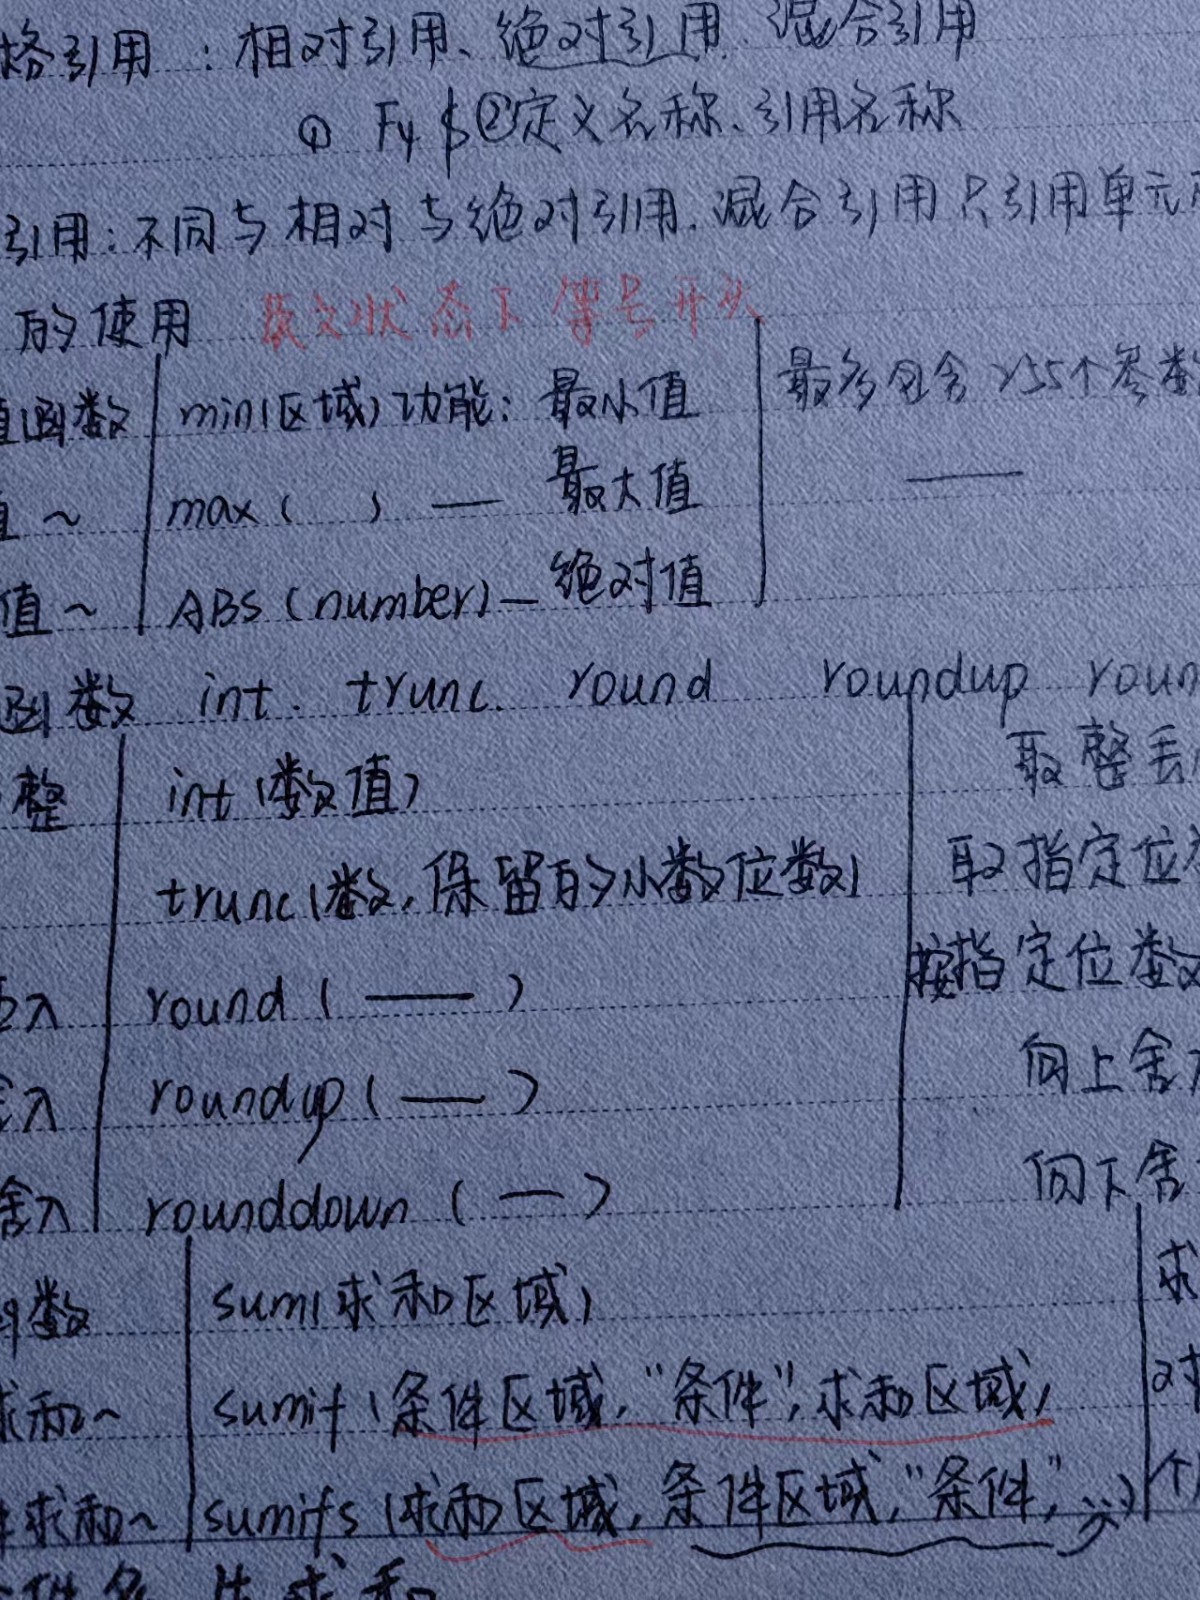 格引用：相对引用、绝对引用、混合引用
① F4 $ ②定义名称、引用名称
引用：不同与相对与绝对引用.混合引用只引用单元
的使用 英文状态下等号开头
值函数 min(区域)功能：最小值 最多包含255个参数
值~ max( ) — 最大值 —
值~ ABS(number)— 绝对值
函数 int. trunc. round roundup roun
整 int(数值) 取整丢
trunc(数,保留的小数位数) 取指定位
入 round(——) 按指定位数
舍入 roundup(——) 向上舍
舍入 rounddown(—) 向下舍
函数 sum(求和区域) 求
求和~ sumif(条件区域,"条件",求和区域) 对
求和~ sumifs(求和区域,条件区域,"条件",…) 个
求和